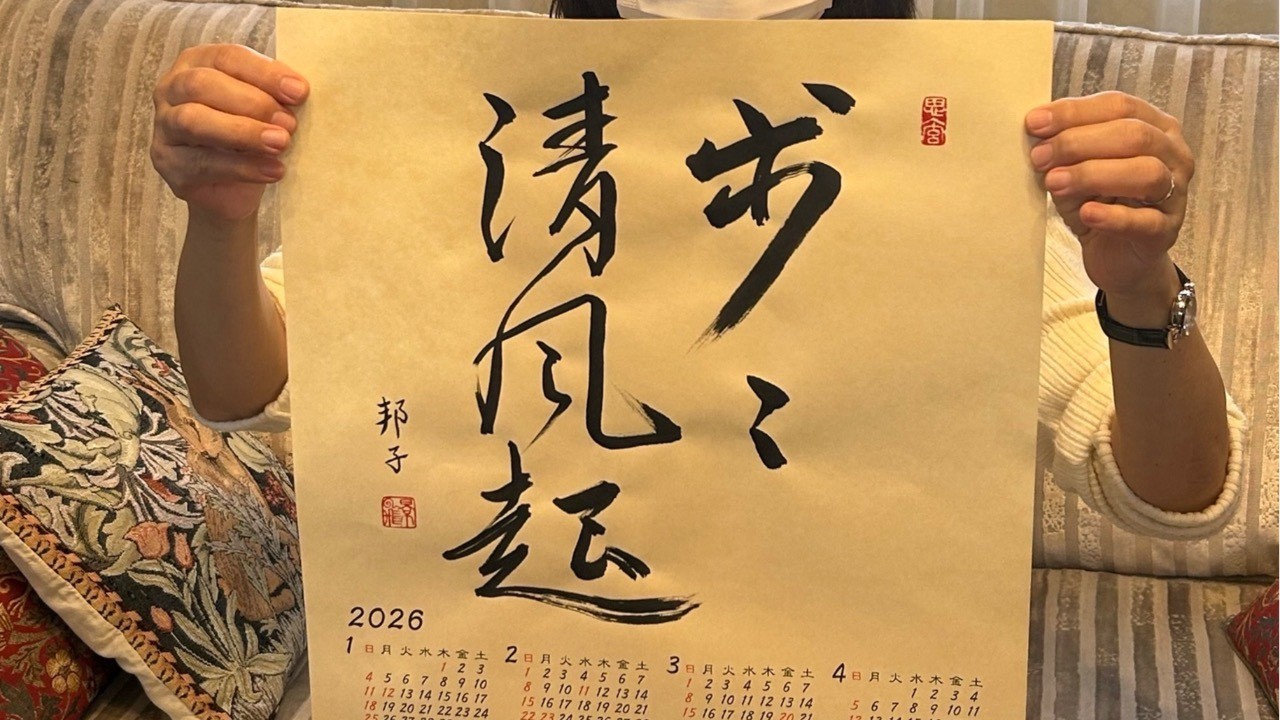 歩〻
清風起
邦子
2026
1 日 月 火 水 木 金 土
1 2 3
4 5 6 7 8 9 10
11 12 13 14 15 16 17
18 19 20 21 22 23 24
2 日 月 火 水 木 金 土
1 2 3 4 5 6 7
8 9 10 11 12 13 14
15 16 17 18 19 20 21
22 23 24 25 26 27 28
3 日 月 火 水 木 金 土
1 2 3 4 5 6 7
8 9 10 11 12 13 14
15 16 17 18 19 20 21
4 日 月 火 水 木 金 土
1 2 3 4
5 6 7 8 9 10 11